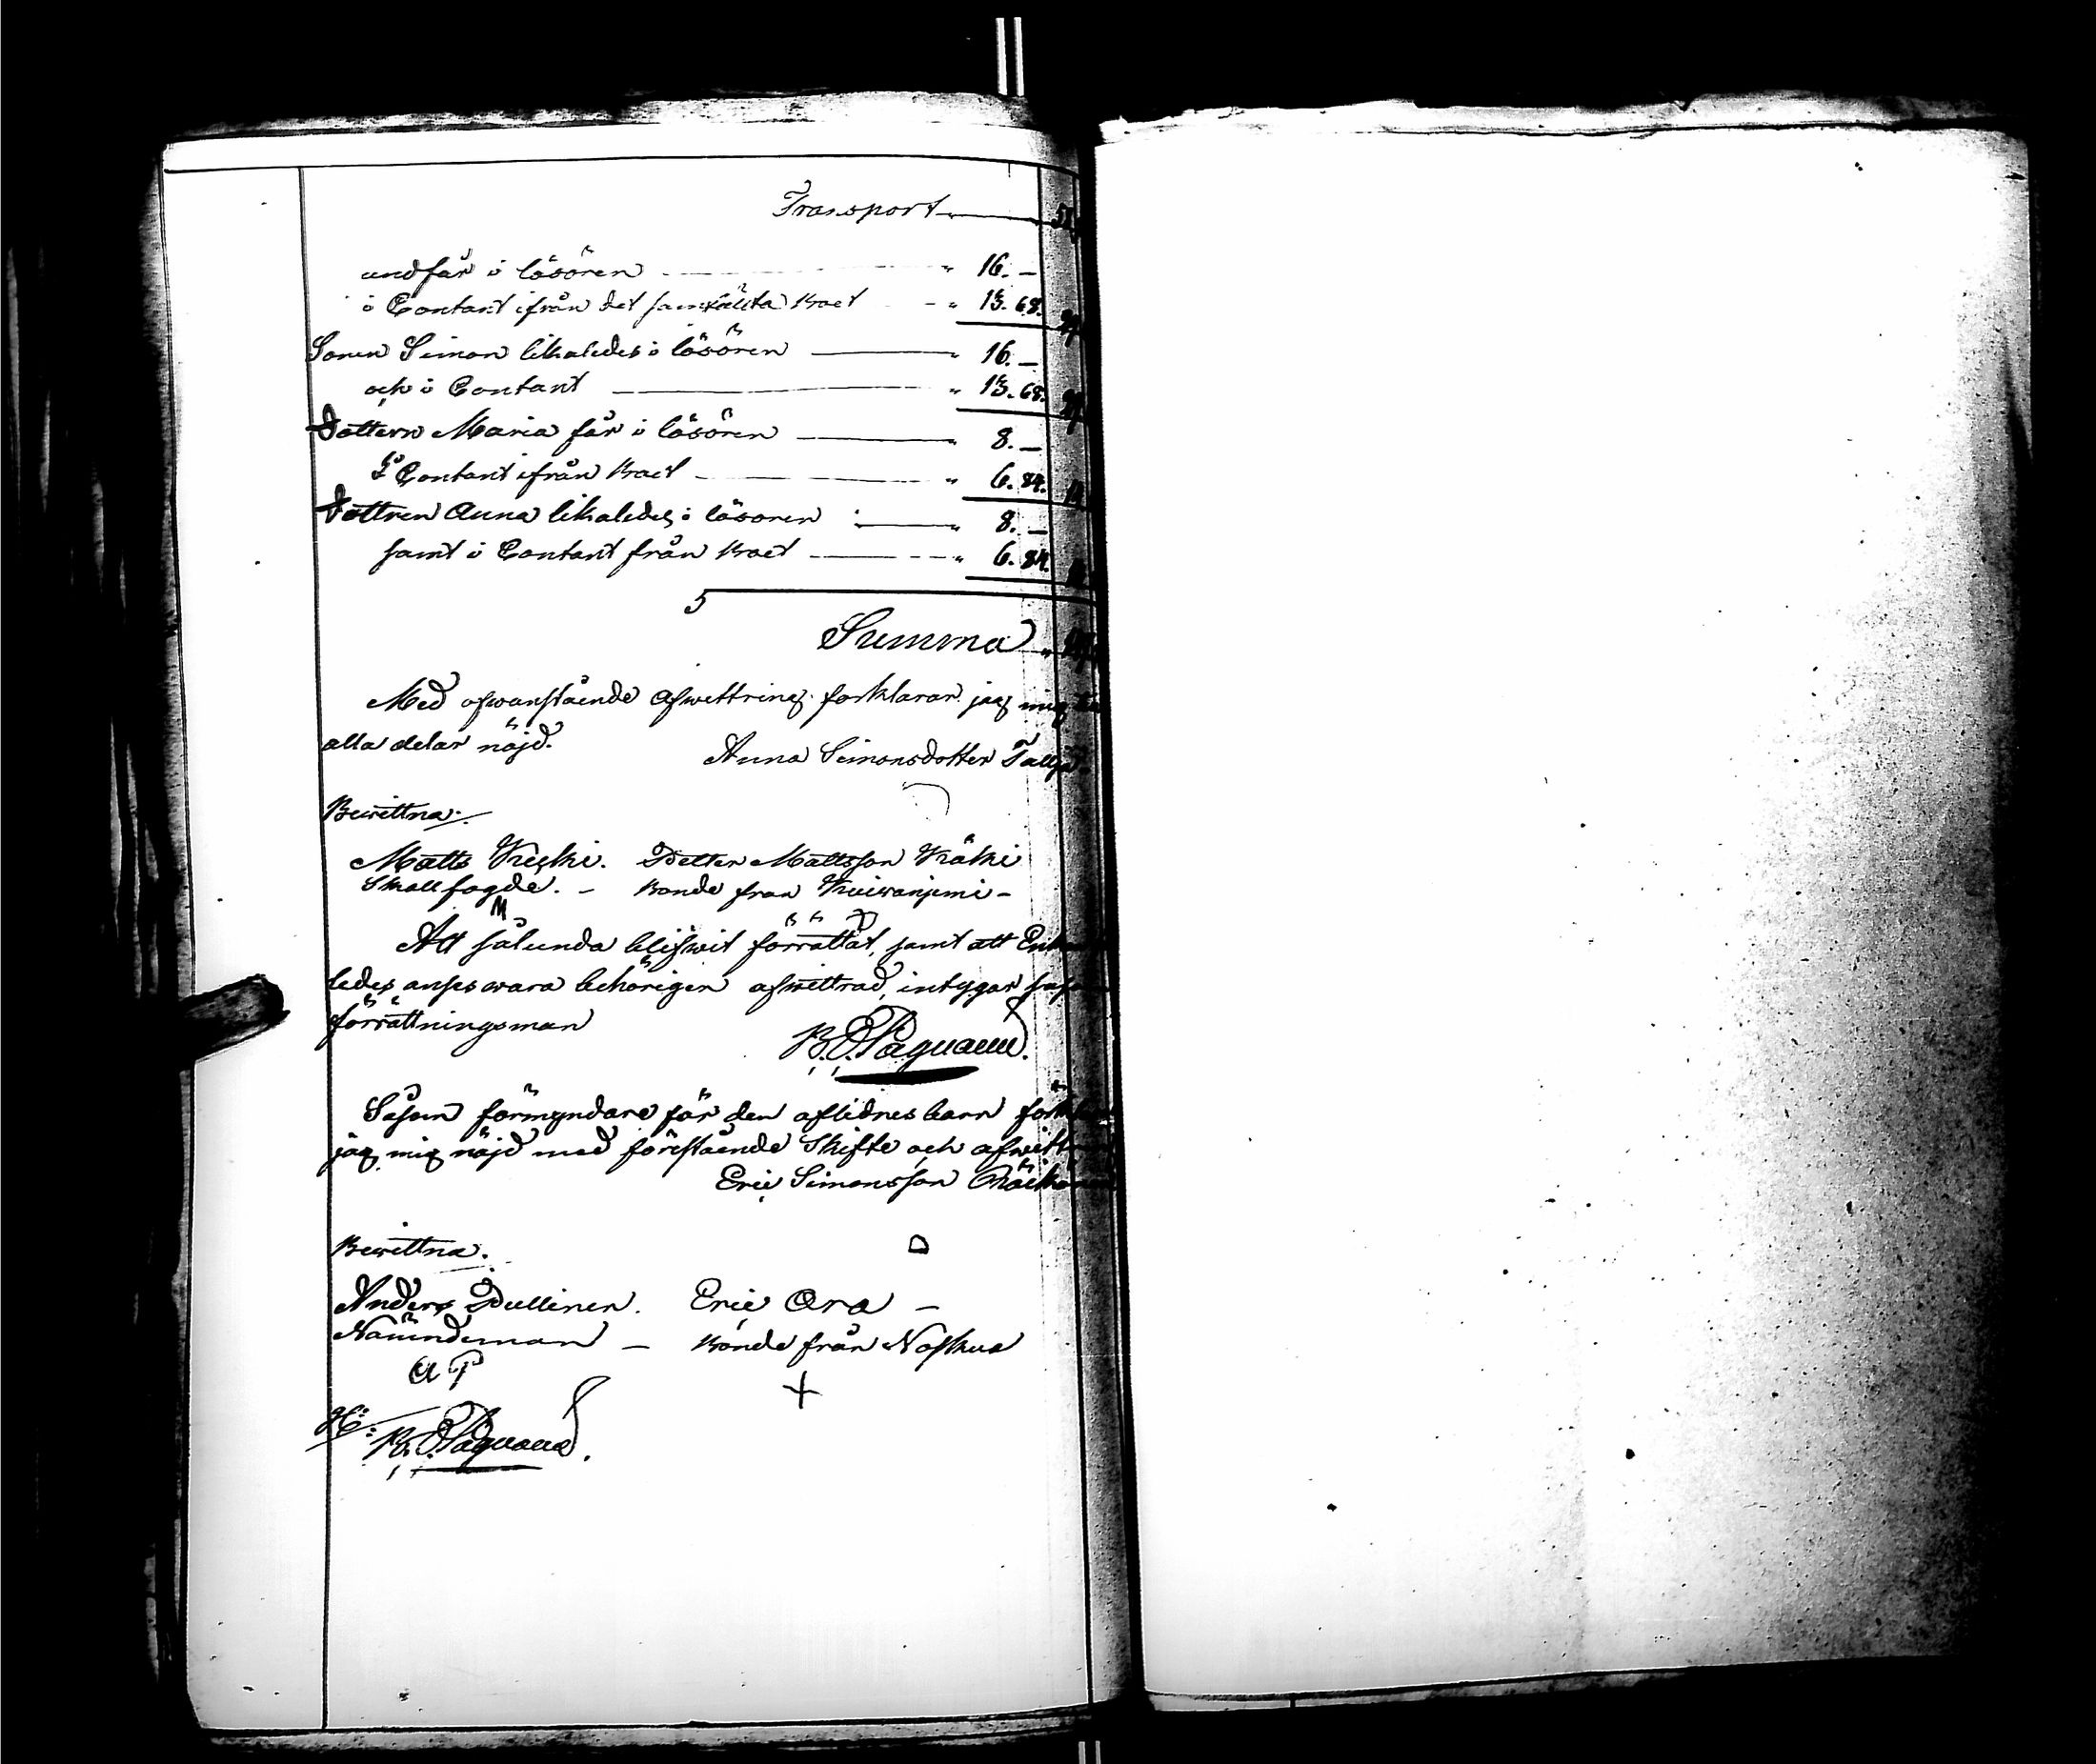 Transport
undfår i lösören " 16. —
i Contant ifrån det samfälta boet " 13. 68.
Sonen Simon likaledes i lösören " 16. —
och i Contant " 13. 68.
Dottern Maria får i lösören " 8. —
i Contant ifrån boet " 6. 84.
Dottren Anna likaledes i lösören " 8. —
samt i Contant från boet " 6. 84.
Summa "
Med ofwanstående afwittring förklarar jag mig
alla delar nöjd.
Anna Simonsdotter
Bewittna:
Matts Keski. Petter Mattsson Käki
Skallfogde. — bonde från Kuiwaniemi —
M
Att sålunda blifwit förrättat, samt att
ledes anses wara behörigen afwittrad, intygar
förrättningsman
Såsom förmyndare för den aflidnes barn
jag mig nöjd med förestående Skifte och
Eric Simonsson
Bewittna.
Anders Pullinen. Eric Ora —
Nämndeman — bonde från
A P